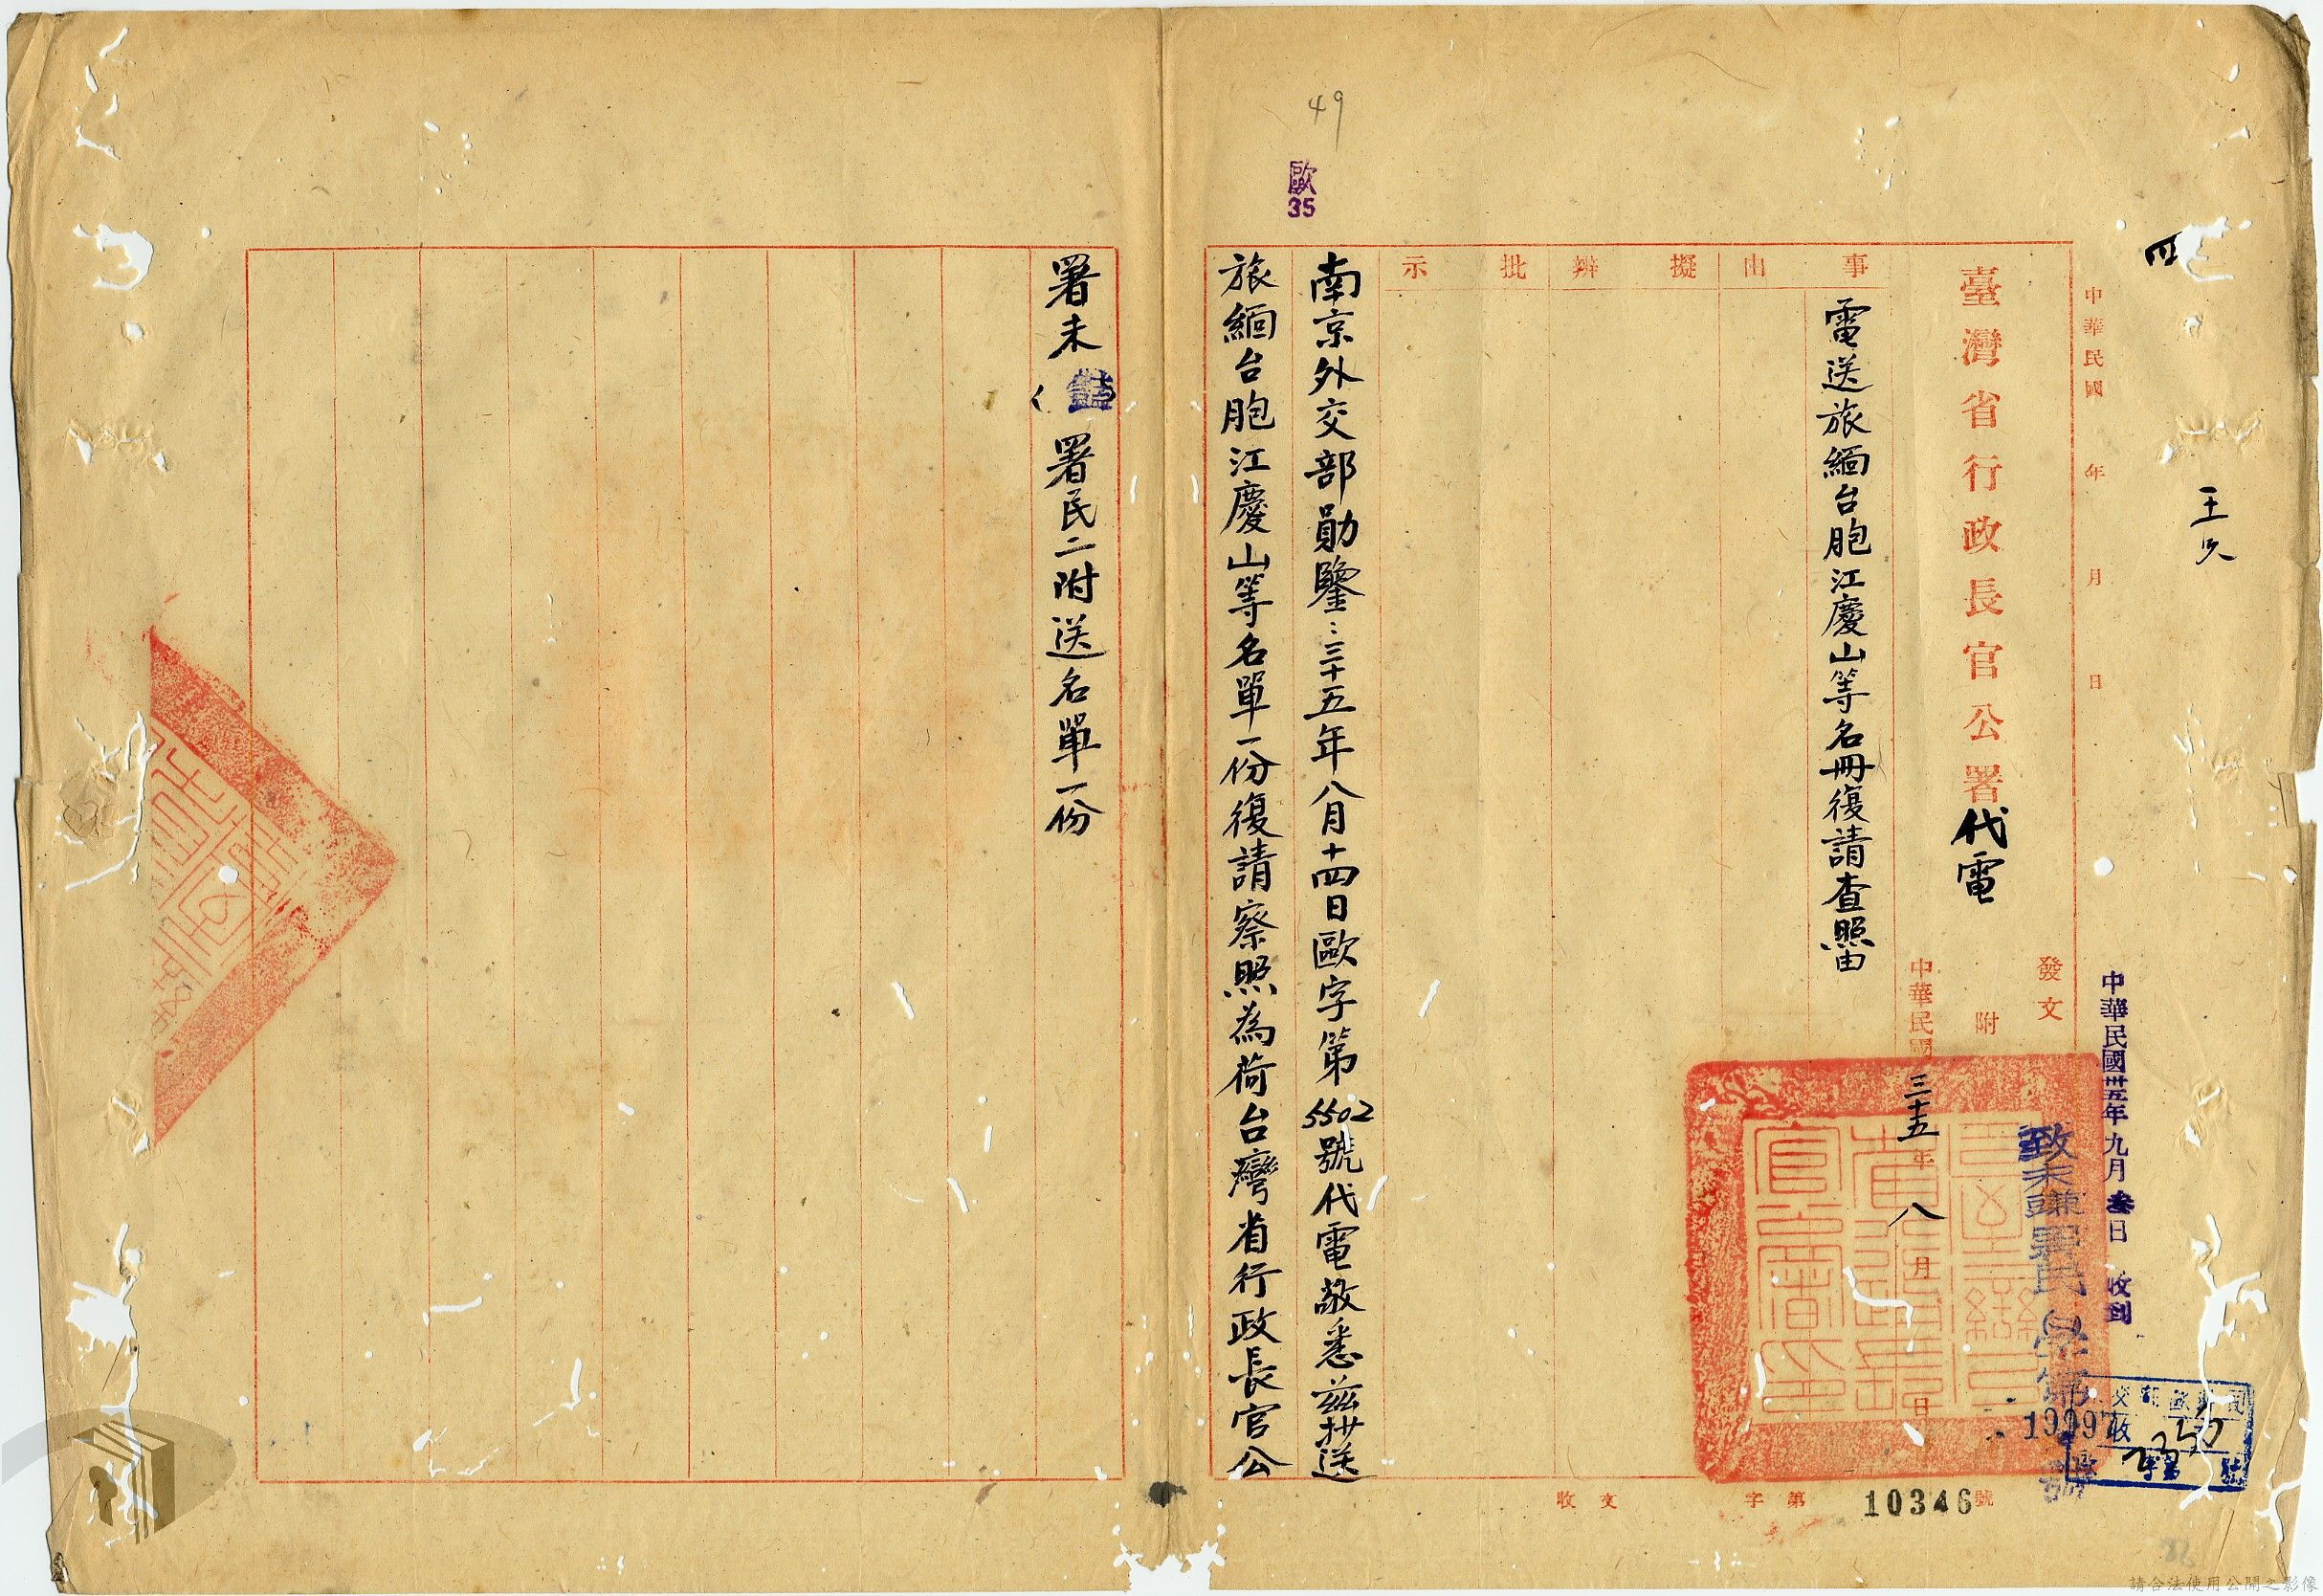 49
歐
35
四
王久
中華民國 年 月 日
臺灣省行政長官公署代電
發文
附
中華民國三十五年八月 日
中華民國卅五年九月叁日收到
致未
署民
第
19997
號
事由
擬辦
批示
電送旅緬台胞江慶山等名冊復請查照由
南京外交部勛鑒：三十五年八月十四日歐字第5502號代電敬悉茲抄送
旅緬台胞江慶山等名單一份復請察照為荷台灣省行政長官公
署未（ ）署民二附送名單一份
收文 字第10346號
請合法使用公開之影像